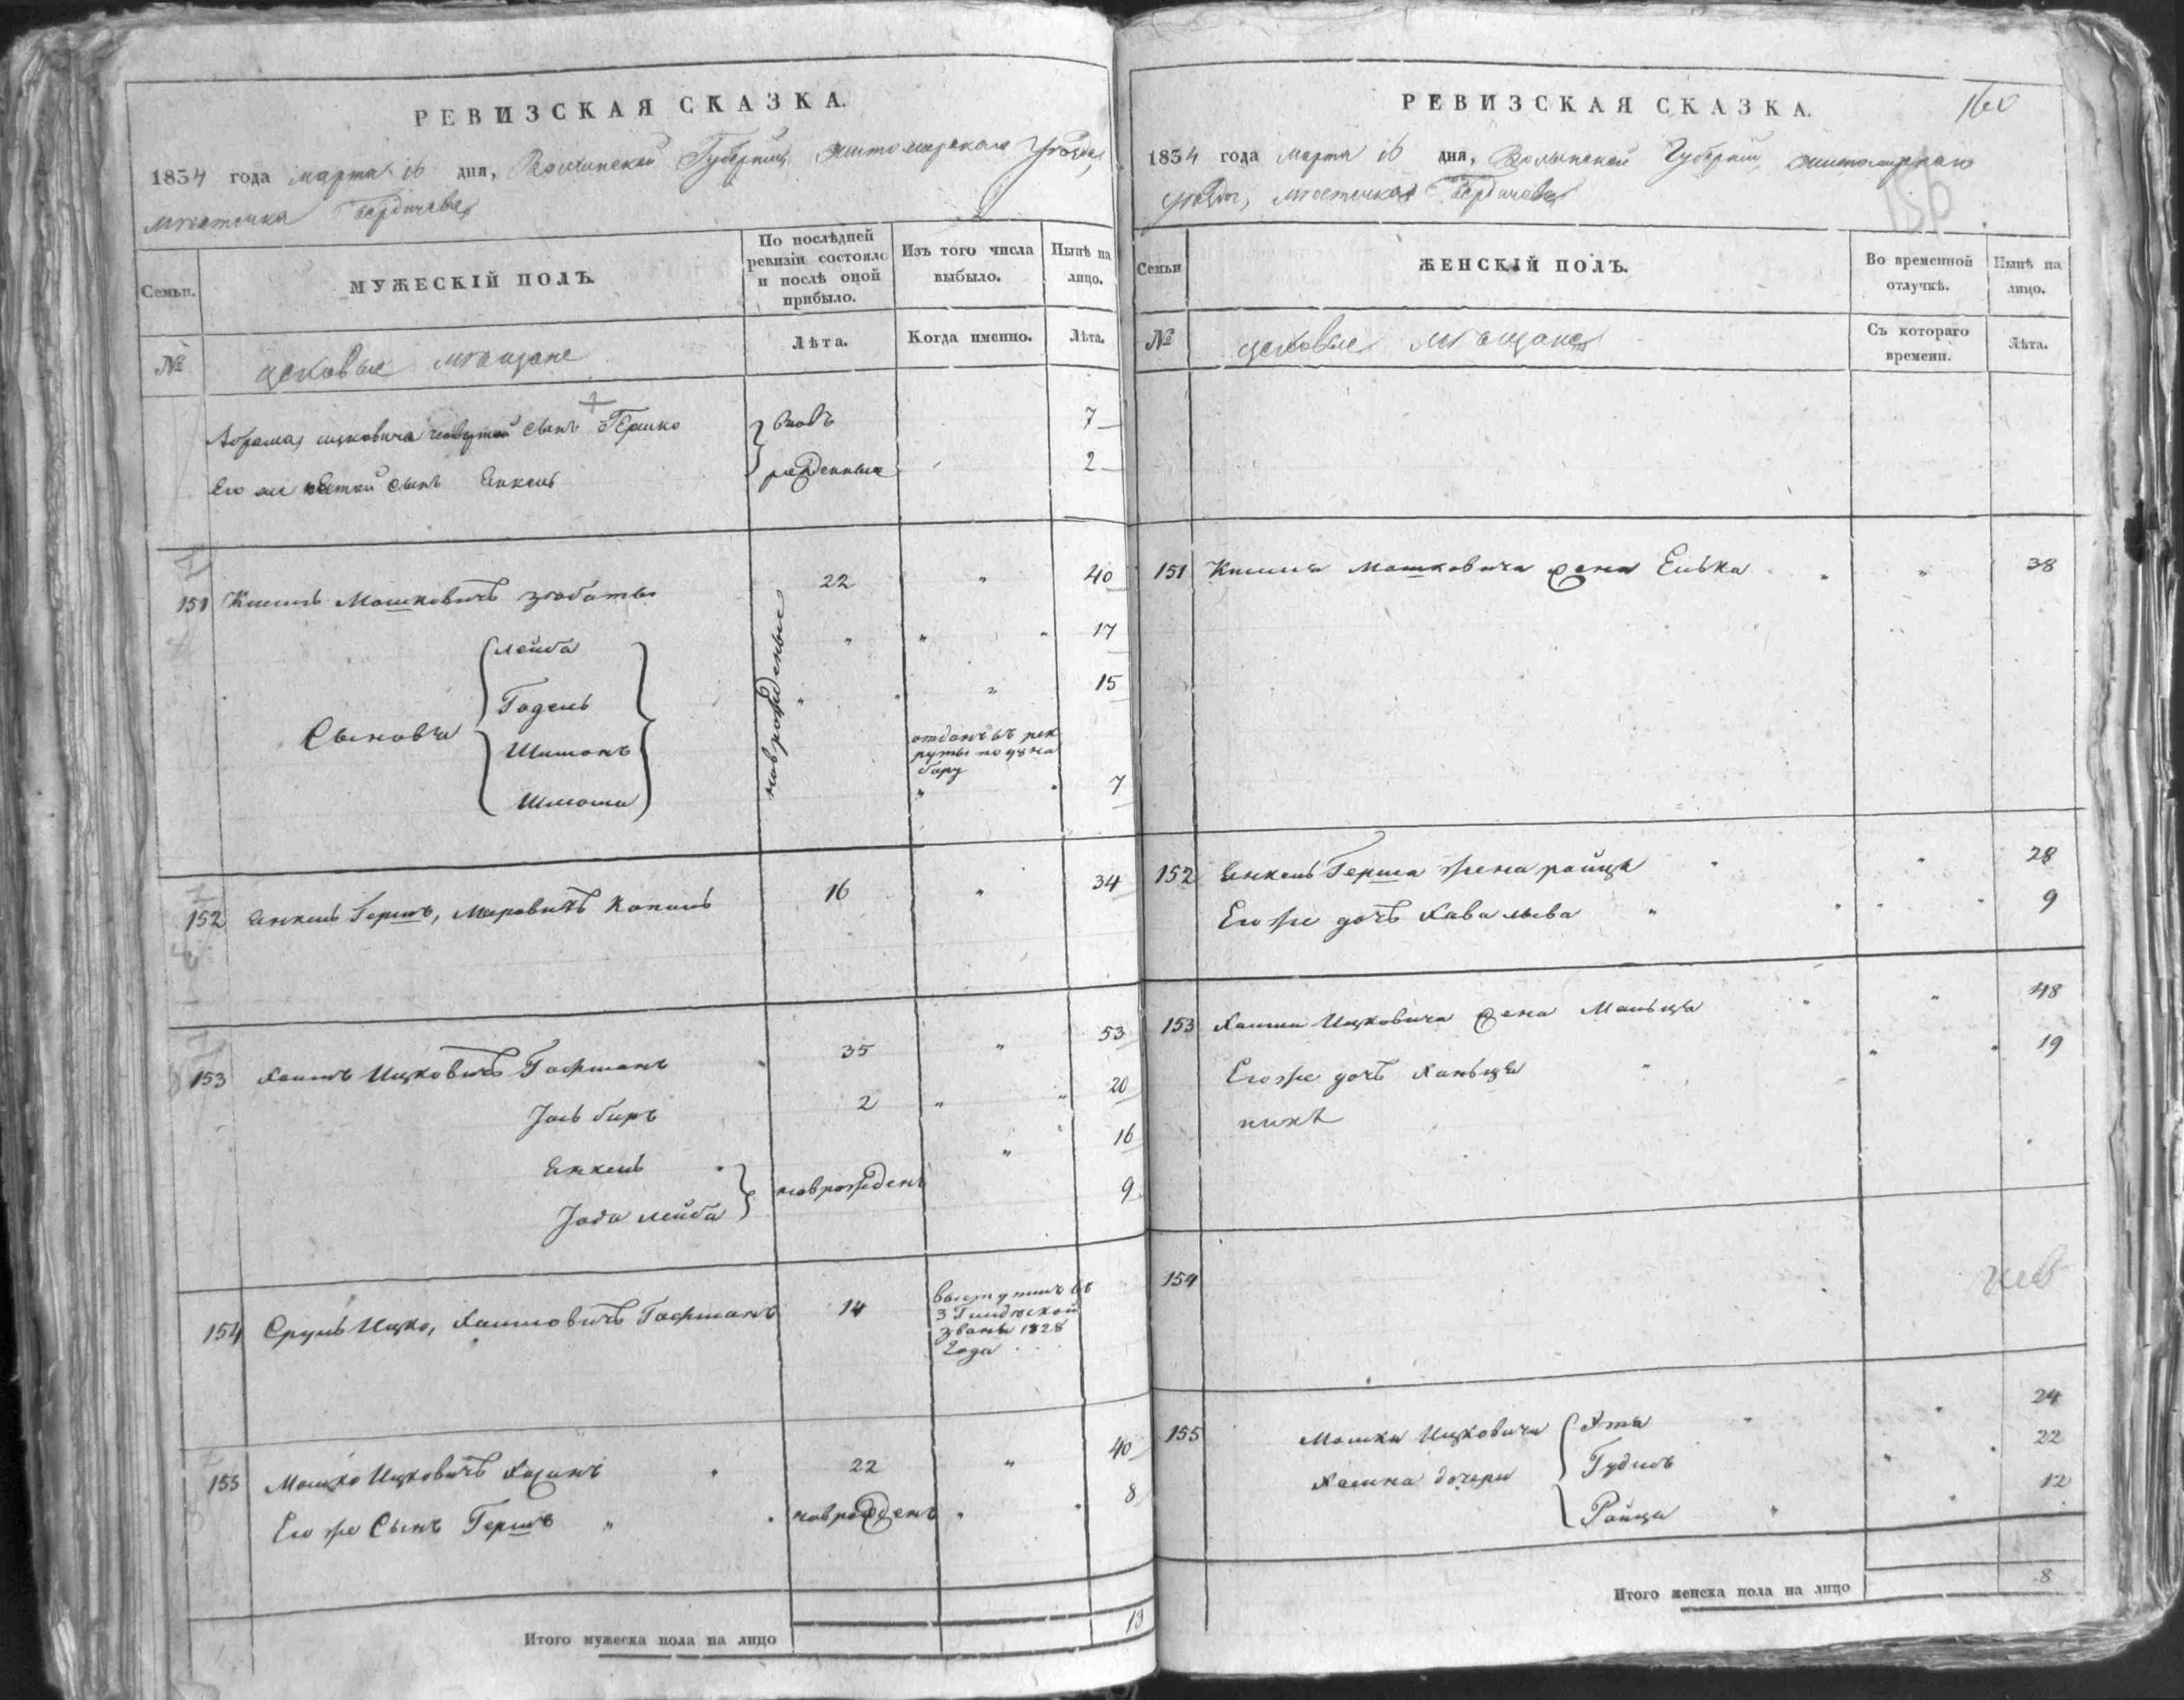 РЕВИЗСКАЯ СКАЗКА.
1834 года марта 16 дня, Волынской Губернiи, Житомирскаго Уѣзда,
мѣстечка Бердичева
Семьи.
МУЖЕСКІЙ ПОЛЪ.
По послѣдней ревизіи состояло и послѣ оной прибыло.
Изъ того числа выбыло.
Нынѣ на лицо.
№
цеховые мѣщане
Лѣта.
Когда именно.
Лѣта.
Абрама Ицковича сынъ Гершко вновь 7
Его же сынъ Янкель рожденные 2
151 Мошковичъ 22 " 40
Сыновья
Лейба " " " 17
Годель " " 15
Шимонъ отданъ въ рек
руты по
бору
Шлома " 7
новрожденые
152 Янкель Гершъ, Меровичъ Копель 16 " 34
153 Хаимъ Ицковичъ Гофманъ 35 " 53
Іось беръ 2 " " 20
Янкель " 16
Лейба новрожденъ 9
154 Сруль Ицко, Хаимовичъ Гофманъ 14 выступилъ въ
3 Гильдейской
званіе 1828
Года
155 Мошко Ицковичъ Хазинъ 22 " 40
Его же Сынъ Гершъ " новрожденъ " 8
Итого мужеска пола на лицо 13
РЕВИЗСКАЯ СКАЗКА.
160
1834 года марта 16 дня, Волынской Губернiи, Житомирскаго
уѣзда, мѣстечка Бердичева
156
Семьи
ЖЕНСКІЙ ПОЛЪ.
Во временной отлучкѣ.
Нынѣ на лицо.
№
цеховые мѣщане
Съ котораго времени.
Лѣта.
151 Мошковича жена Елька " " 38
152 Янкель Герша жена Ройца " " 28
Его же дочь Хава " " " 9
153 Хаима Ицковича жена Мальца " " 48
Его же дочь Ханьця " " " 19
154
155 Мошки Ицковича
Хазина дочери
Эта " " 24
Гудель " " 22
Ройца " " 12
Итого женска пола на лицо 8